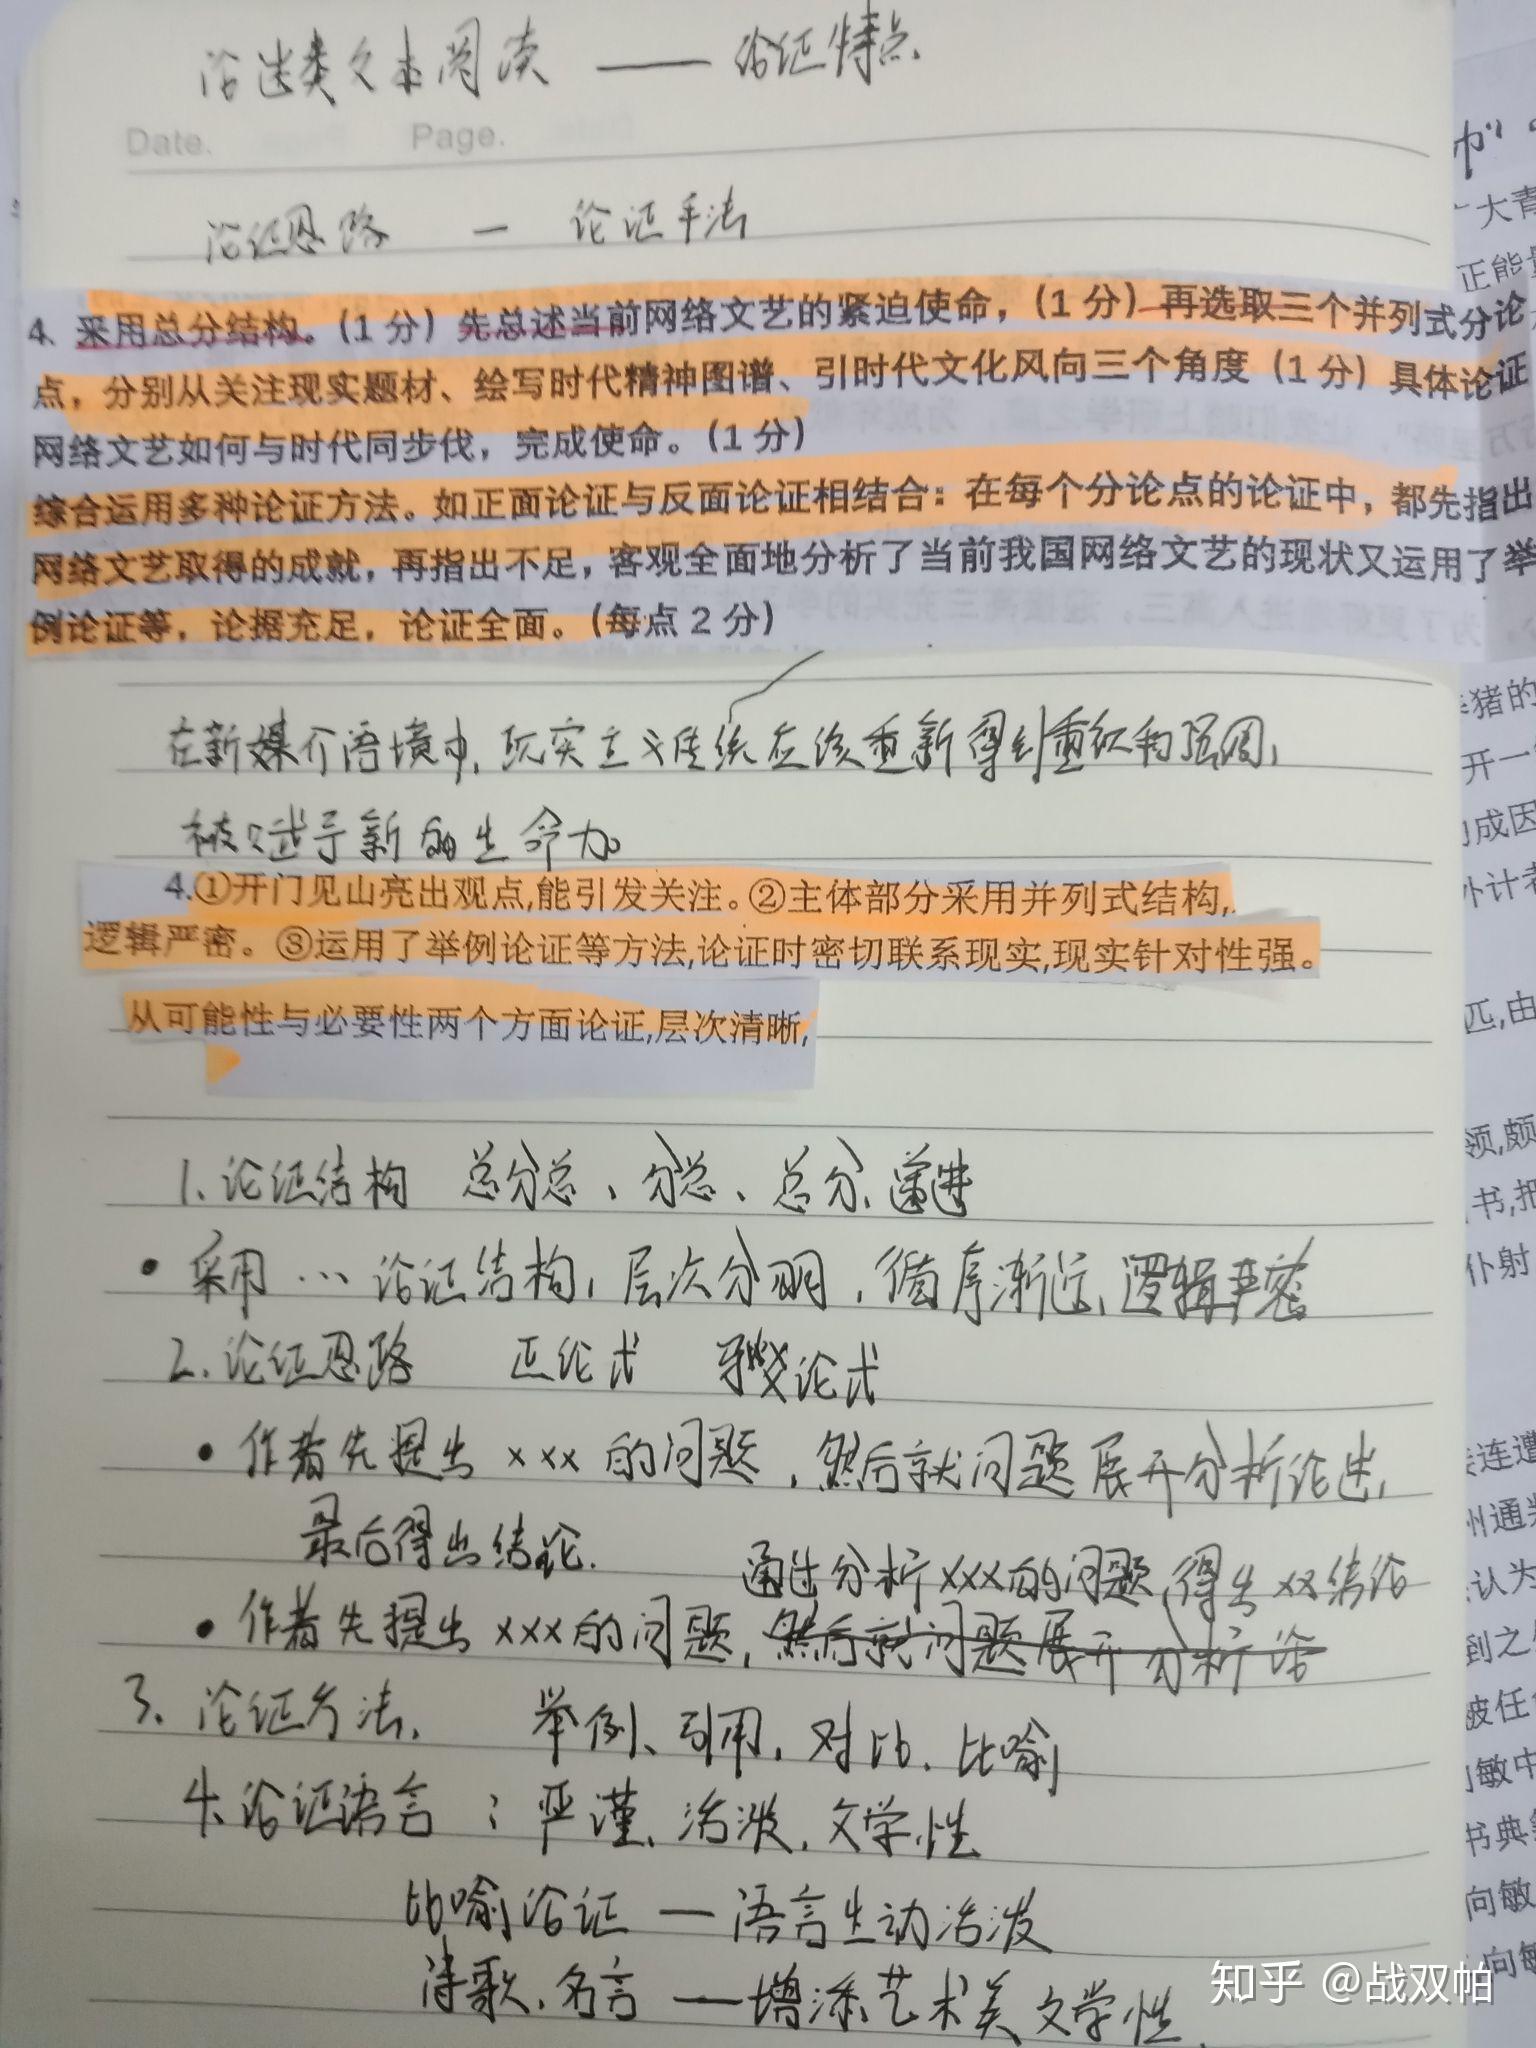 论述类文本阅读 —— 论证特点
Date. Page.
论证思路 — 论证手法
4. 采用总分结构。(1 分) 先总述当前网络文艺的紧迫使命，(1 分) 再选取三个并列式分论
点，分别从关注现实题材、绘写时代精神图谱、引时代文化风向三个角度 (1 分) 具体论证
网络文艺如何与时代同步伐，完成使命。(1 分)
综合运用多种论证方法。如正面论证与反面论证相结合：在每个分论点的论证中，都先指出
网络文艺取得的成就，再指出不足，客观全面地分析了当前我国网络文艺的现状又运用了举
例论证等，论据充足，论证全面。(每点 2 分)
在新媒介语境中，现实主义传统应该重新得到重视和强调，
被赋予新的生命力。
4.①开门见山亮出观点,能引发关注。②主体部分采用并列式结构,
逻辑严密。③运用了举例论证等方法,论证时密切联系现实,现实针对性强。
从可能性与必要性两个方面论证,层次清晰,
1. 论证结构 总分总、分总、总分、递进
• 采用 … 论证结构，层次分明，循序渐近、逻辑严密
2. 论证思路 正论式 驳论式
• 作者先提出 xxx 的问题，然后就问题展开分析论述，
最后得出结论.
通过分析xxx的问题,得出xx结论
• 作者先提出 xxx的问题，然后就问题展开分析论
3. 论证方法. 举例、引用，对比、比喻
4. 论证语言：严谨、活泼，文学性
比喻论证 — 语言生动活泼
诗歌、名言 — 增添艺术美文学性.
巾"
广大青
正能量
猪的
开一
成因
外计者
匹,由
领,颇
书,把
仆射
连遭
州通判
认为
到之
被任
敏中
书典
向敏
向敏
知乎 @战双帕